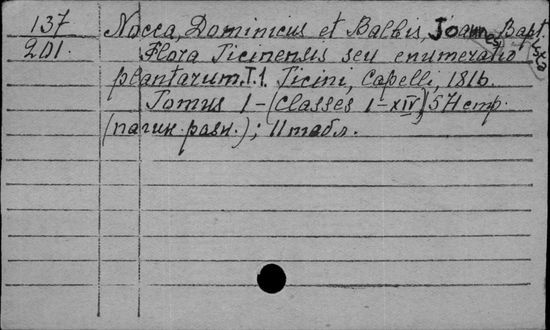 137 Nocca, Dominicus et Balbis, Joann. Bapt.
201. Flora Ticinensis seu enumeratio
plantarum. T.1. Ticini, Capelli, 1816.
Tomus 1 – (Classes I–XIV) 574 стр.
(пагин. разн.); 11 табл.